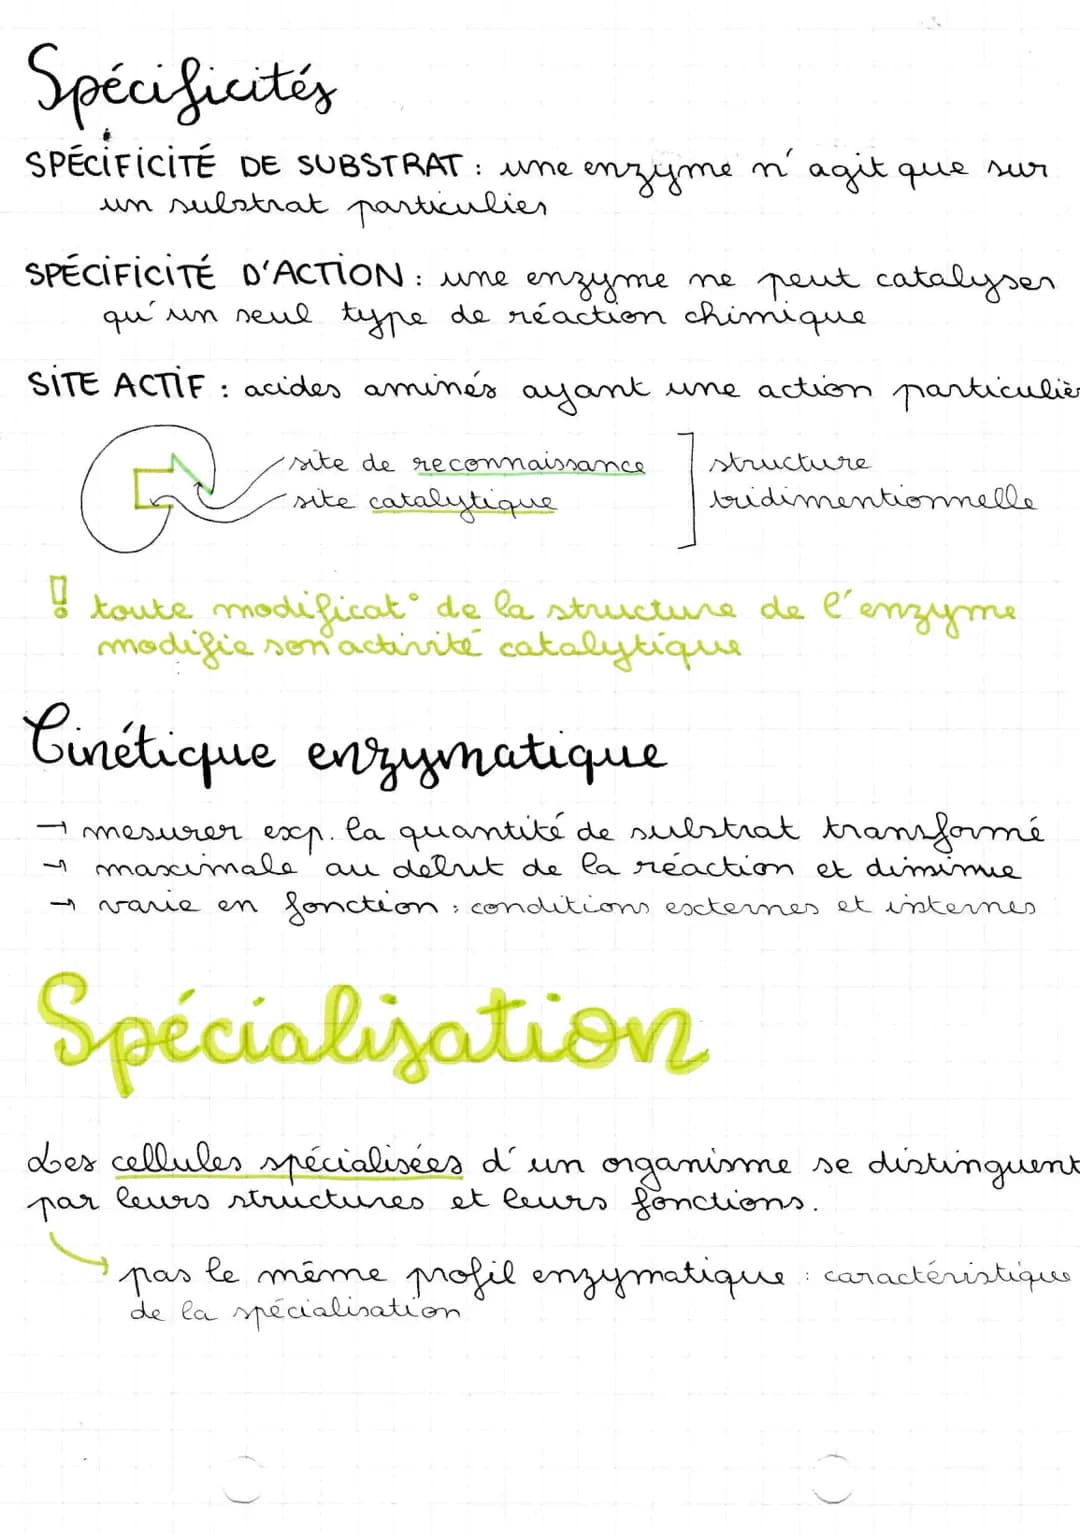 Spécificités
SPÉCIFICITÉ DE SUBSTRAT : une enzyme n'agit que sur
un substrat particulier
SPÉCIFICITÉ D'ACTION : une enzyme ne peut catalyser
qu'un seul type de réaction chimique
SITE ACTIF : acides aminés ayant une action particulièr
site de reconnaissance
site catalytique
structure
tridimentionnelle
! toute modificat° de la structure de l'enzyme
modifie son activité catalytique
Cinétique enzymatique
→ mesurer exp. la quantité de substrat transformé
→ maximale au début de la réaction et diminue
→ varie en fonction : conditions externes et internes
Spécialisation
Les cellules spécialisées d'un organisme se distinguent
par leurs structures et leurs fonctions.
pas le même profil enzymatique : caractéristique
de la spécialisation